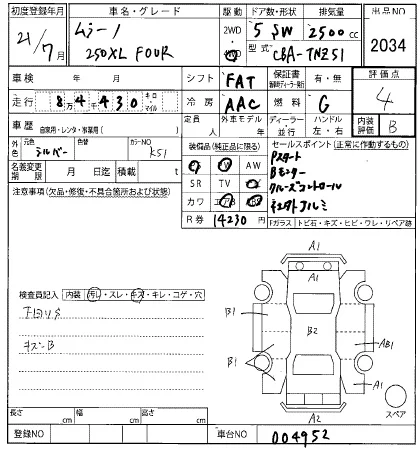 初度登録年月 車名・グレード 駆動 ドア数・形状 排気量 出品NO
21/7月 ムラーノ 2WD・4WD 5 SW 2500cc 2034
250XL FOUR 型式 CBA-TNZ51
車検 年 月 シフト FAT 保証書 有・無 評価点
走行 84430 キロ・マイル 冷房 AAC 燃料 G 4
車歴 自家用・レンタ・事業用( ) 定員 人 外車モデル 年 ディーラー・並行 ハンドル 左・右 内装評価 B
外色 元色 シルバー 色替 カラーNO K51
装備品(純正品に限る) セールスポイント(正常に作動するもの)
名義変更期限 月 日迄 積載 t
PS PW AW
SR TV ナビ
カワ エアB
R券 14230
Pスタート
Bモニター
クルーズコントロール
注意事項(欠品・修復・不具合箇所および状態)
Fガラス トビ石・キズ・ヒビ・ワレ・リペア跡
A1
A1
検査員記入 内装 汚レ・スレ・キズ・キレ・コゲ・穴
B1
B2
AB1
キズB
B1
A1
A2
スペア
長さ cm 幅 cm 高さ cm
登録NO 車台NO 004952